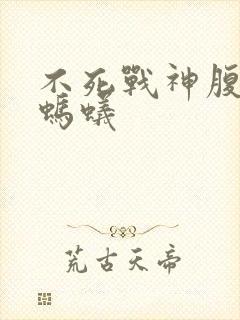 不死戰神腹
螞蟻
荒古天帝